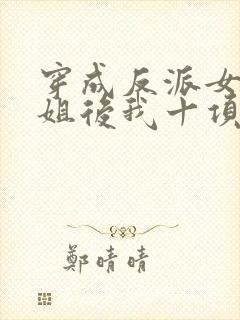 穿成反派女
姐後我十項
鄭晴晴